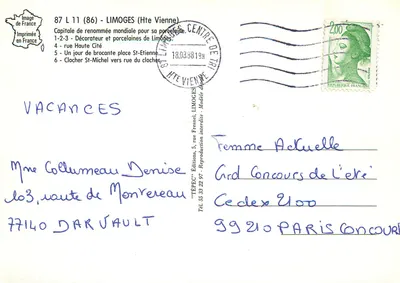 Image
de France
Imprimée
en France
87 L 11 (86) - LIMOGES (Hte Vienne)
Capitale de renommée mondiale pour sa porcelaine.
1-2-3 - Décorateur et porcelaines de Limoges
4 - rue Haute Cité
5 - Un jour de brocante place St-Etienne
6 - Clocher St-Michel vers rue du clocher.
LIMOGES CENTRE DE TRI
HTE VIENNE
2,00
VACANCES
Mme Collumeau Denise
103, route de Montereau
77140 DARVAULT
"TEPEC" Editions, 5, rue Ferussi, LIMOGES
Tél. 55 33 22 97 - Reproduction interdite - Modèle
Femme Actuelle
Grd Concours de l'été
Cedex 2100
99210 PARIS CONCOURS